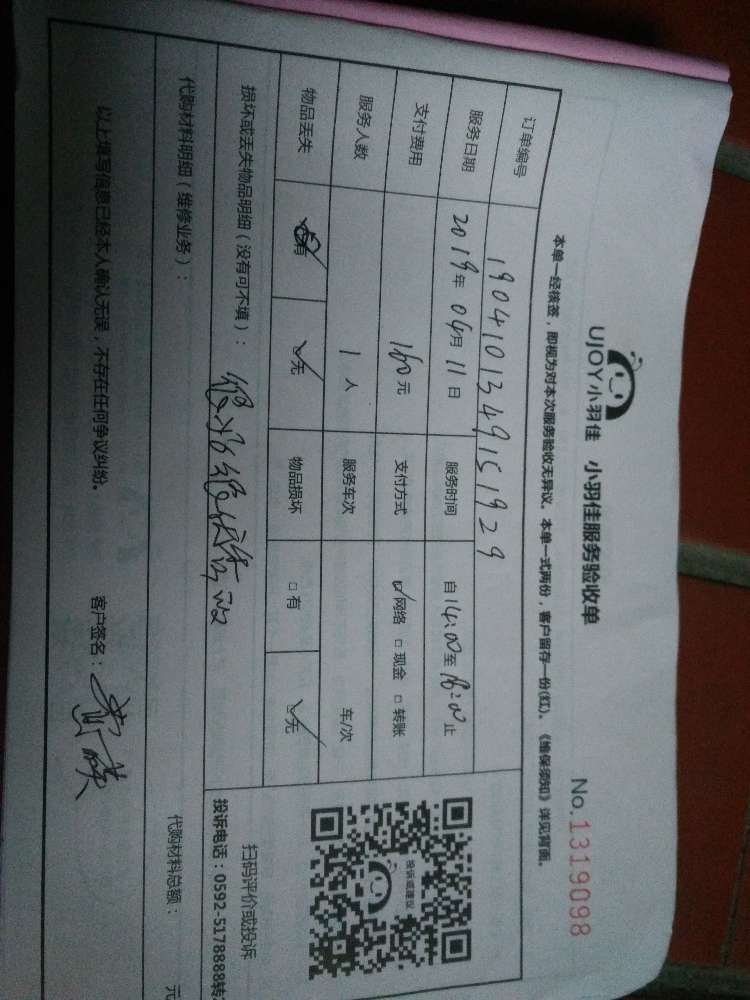 UJOY小羽佳 小羽佳服务验收单
No.1319098
本单一经核签，即视为对本次服务验收无异议。本单一式两份，客户留存一份(红)。《维保须知》详见背面。
订单编号 1904101349151929
服务日期 2019年04月11日 服务时间 自14:00至18:00止
支付费用 160元 支付方式 ☑网络 □现金 □转账
服务人数 1人 服务车次 车/次
物品丢失 有 ☑无 物品损坏 □有 ☑无
损坏或丢失物品明细（没有可不填）：
代购材料明细（维修业务）：
代购材料总额： 元
以上填写信息已经本人确认无误，不存在任何争议纠纷。 客户签名：
投诉或建议
扫码评价或投诉
投诉电话：0592-5178888转